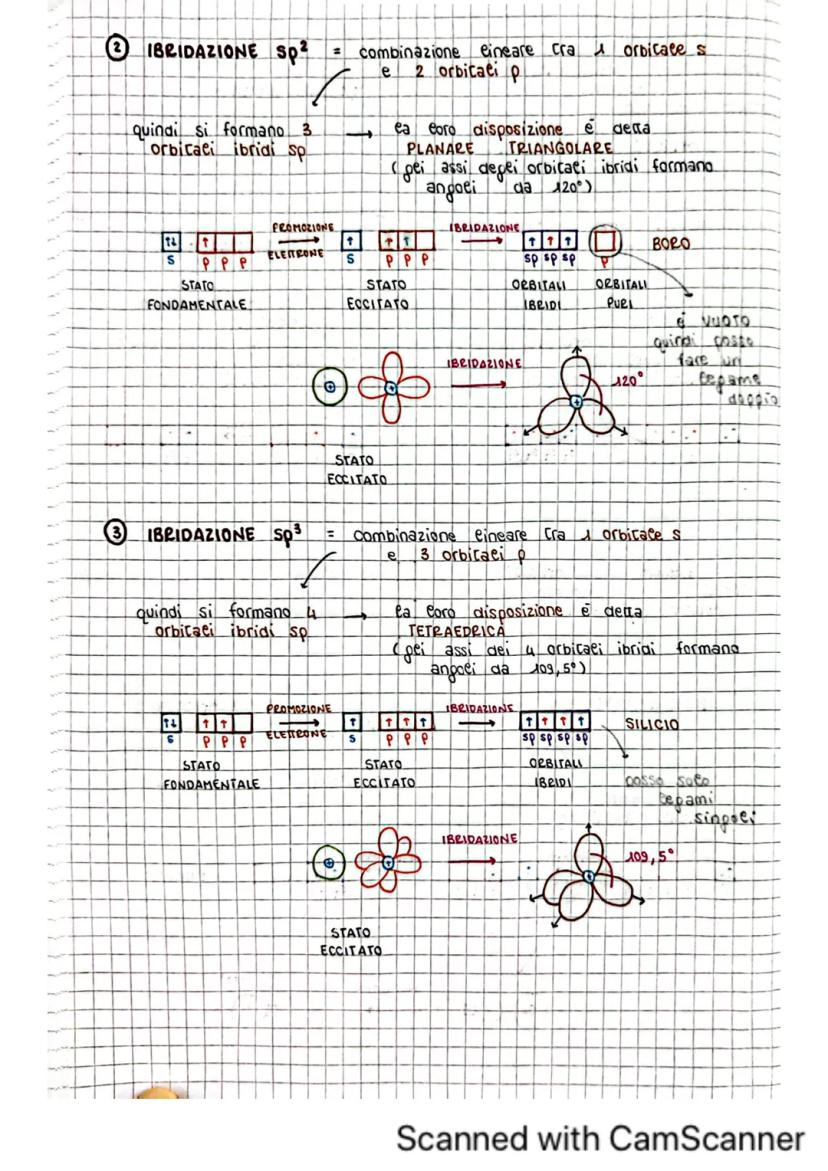 2 IBRIDAZIONE sp² = combinazione lineare tra 1 orbitale s
e 2 orbitali p
quindi si formano 3 → la loro disposizione é detta
orbitali ibridi sp PLANARE TRIANGOLARE
(gli assi degli orbitali ibridi formano
angoli da 120°)
PROMOZIONE IBRIDAZIONE
↑↓ ↑ → ↑ ↑ ↑ → ↑ ↑ ↑ BORO
ELETTRONE
S P P P S P P P sp sp sp P
STATO STATO ORBITALI ORBITALI
FONDAMENTALE ECCITATO IBRIDI PURI
é VUOTO
quindi posso
fare un
legame
doppio
IBRIDAZIONE
120°
+ + +
STATO
ECCITATO
3 IBRIDAZIONE sp³ = combinazione lineare tra 1 orbitale s
e 3 orbitali p
quindi si formano 4 → la loro disposizione é detta
orbitali ibridi sp TETRAEDRICA
(gli assi dei 4 orbitali ibridi formano
angoli da 109,5°)
PROMOZIONE IBRIDAZIONE
↑↓ ↑ ↑ → ↑ ↑ ↑ ↑ → ↑ ↑ ↑ ↑ SILICIO
ELETTRONE
S P P P S P P P sp sp sp sp
STATO STATO ORBITALI
FONDAMENTALE ECCITATO IBRIDI
posso solo
legami
singoli
IBRIDAZIONE
109,5°
+ + +
STATO
ECCITATO
Scanned with CamScanner